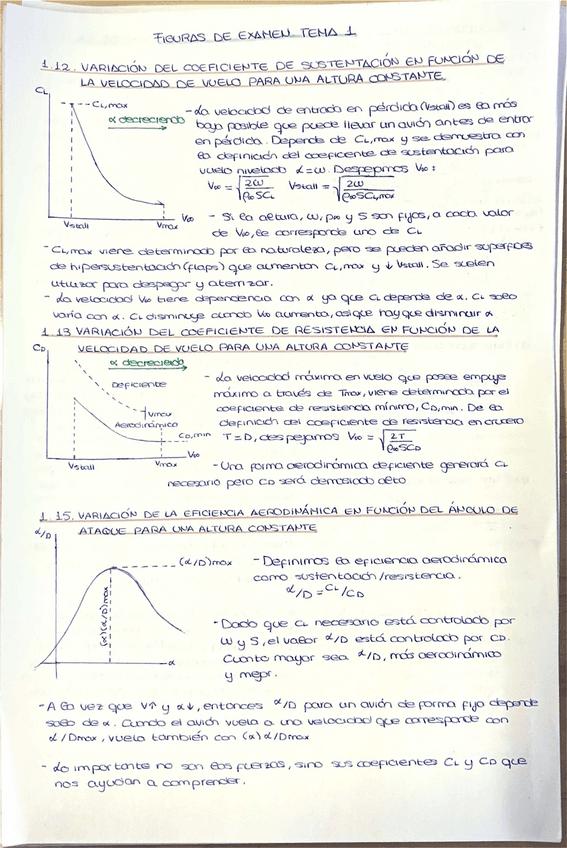 FIGURAS DE EXAMEN TEMA 1
1.12. VARIACIÓN DEL COEFICIENTE DE SUSTENTACIÓN EN FUNCIÓN DE
LA VELOCIDAD DE VUELO PARA UNA ALTURA CONSTANTE
CL
CL,max
α decreciendo
Vstall
Vmax
V∞
- La velocidad de entrada en pérdida (Vstall) es la más
bajo posible que puede llevar un avión antes de entrar
en pérdida. Depende de CL,max y se demuestra con
la definición del coeficiente de sustentación para
vuelo nivelado L=W. Despejamos V∞:
V∞ = √(2W / ρ∞SCL) Vstall = √(2W / ρ∞SCL,max)
- Si la altura, W, ρ∞ y S son fijos, a cada valor
de V∞, le corresponde uno de CL
- CL,max viene determinado por la naturaleza, pero se pueden añadir superficies
de hipersustentación (flaps) que aumentan CL,max y ↓ Vstall. Se suelen
utilizar para despegar y aterrizar.
- La velocidad V∞ tiene dependencia con α ya que CL depende de α. CL solo
varía con α. CL disminuye cuando V∞ aumenta, así que hay que disminuir α
1.13 VARIACIÓN DEL COEFICIENTE DE RESISTENCIA EN FUNCIÓN DE LA
VELOCIDAD DE VUELO PARA UNA ALTURA CONSTANTE
CD
α decreciendo
Deficiente
Vmax
Aerodinámico
CD,min
Vstall
Vmax
V∞
- La velocidad máxima en vuelo que posee empuje
máximo a través de Tmax, viene determinada por el
coeficiente de resistencia mínimo, CD,min. De la
definición del coeficiente de resistencia en crucero
T=D, despejamos V∞ = √(2T / ρ∞SCD)
- Una forma aerodinámica deficiente generará CL
necesario pero CD será demasiado alto
1.15. VARIACIÓN DE LA EFICIENCIA AERODINÁMICA EN FUNCIÓN DEL ÁNGULO DE
ATAQUE PARA UNA ALTURA CONSTANTE
L/D
(L/D)max
(α)(L/D)max
α
- Definimos la eficiencia aerodinámica
como sustentación/resistencia.
L/D = CL/CD
- Dado que CL necesario está controlado por
W y S, el valor L/D está controlado por CD.
Cuanto mayor sea L/D, más aerodinámico
y mejor.
- A la vez que V↑ y α↓, entonces L/D para un avión de forma fija depende
solo de α. Cuando el avión vuela a una velocidad que corresponde con
L/Dmax, vuela también con (α) L/Dmax
- Lo importante no son las fuerzas, sino sus coeficientes CL y CD que
nos ayudan a comprender.